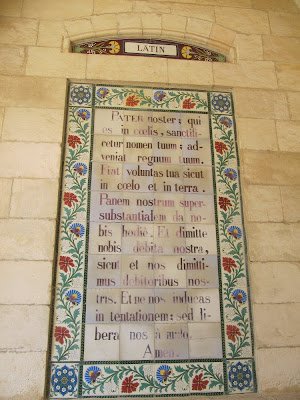 LATIN
PATER noster: qui
es in cœlis, sanctifi-
cetur nomen tuum: ad-
veniat regnum tuum.
Fiat voluntas tua sicut
in cœlo et in terra.
Panem nostrum super-
substantialem da no-
bis hodie. Et dimitte
nobis debita nostra,
sicut et nos dimitti-
mus debitoribus nos-
tris. Et ne nos inducas
in tentationem: sed li-
bera nos a malo.
Amen.